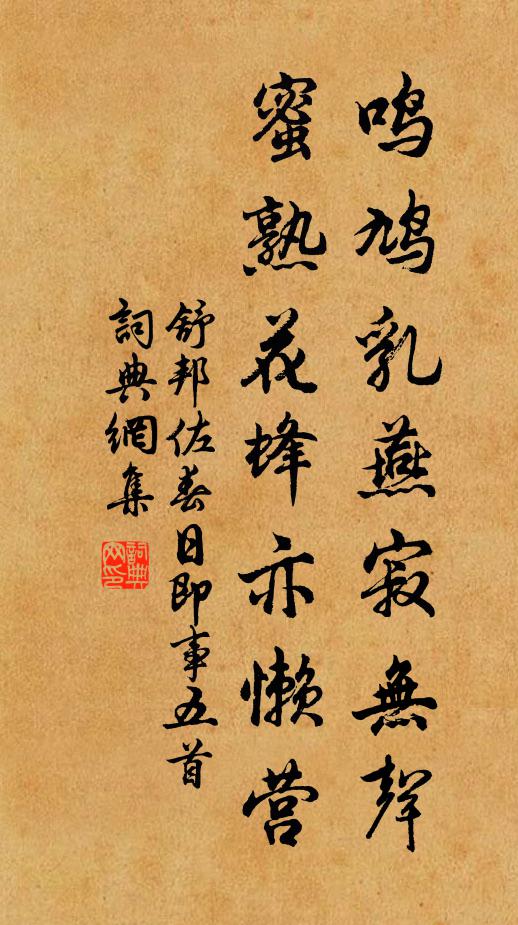 鸣鸠乳燕寂無聲
蜜熟花蜂亦懒营
舒邦佐春日即事五首
詞典網集
詞典网印